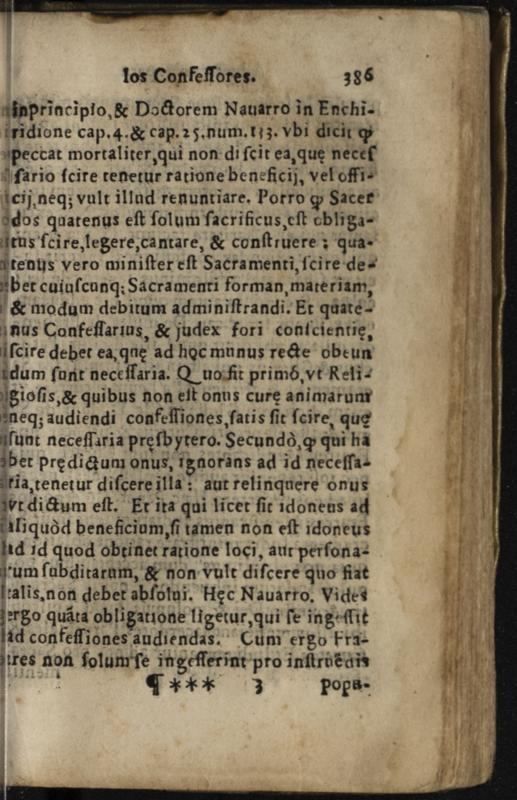 los Confessores. 386
inprincipio, & Doctorem Nauarro in Enchi-
ridione cap. 4. & cap. 25. num. 133. vbi dicit ꝙ
peccat mortaliter, qui non discit ea, quę neces
sario scire tenetur ratione beneficij, vel offi-
cij, neq; vult illud renuntiare. Porro ꝙ Sacer
dos quatenus est solum sacrificus, est obliga-
tus scire, legere, cantare, & construere; qua-
tenus vero minister est Sacramenti, scire de-
bet cuiuscunq; Sacramenti forman, materiam,
& modum debitum administrandi. Et quate-
nus Confessarius, & judex fori conscientię,
scire debet ea, quę ad hęc munus recte obeun
dum sunt necessaria. Quo fit primó, vt Reli-
giosis, & quibus non est onus curę animarum
neq; audiendi confessiones, satis sit scire, quę
sunt necessaria pręsbytero. Secundò, ꝙ qui ha
bet prędictum onus, ignorans ad id necessa-
ria, tenetur discere illa: aut relinquere onus
vt dictum est. Et ita qui licet sit idoneus ad
aliquòd beneficium, si tamen non est idoneus
ad id quod obtinet ratione loci, aut persona-
rum subditarum, & non vult discere quo fiat
talis, non debet absolui. Hęc Nauarro. Vides
ergo quãta obligatione ligetur, qui se ingessit
ad confessiones audiendas. Cum ergo Fra-
tres non solum se ingesserint pro instruẽdis
¶*** 3 popu-